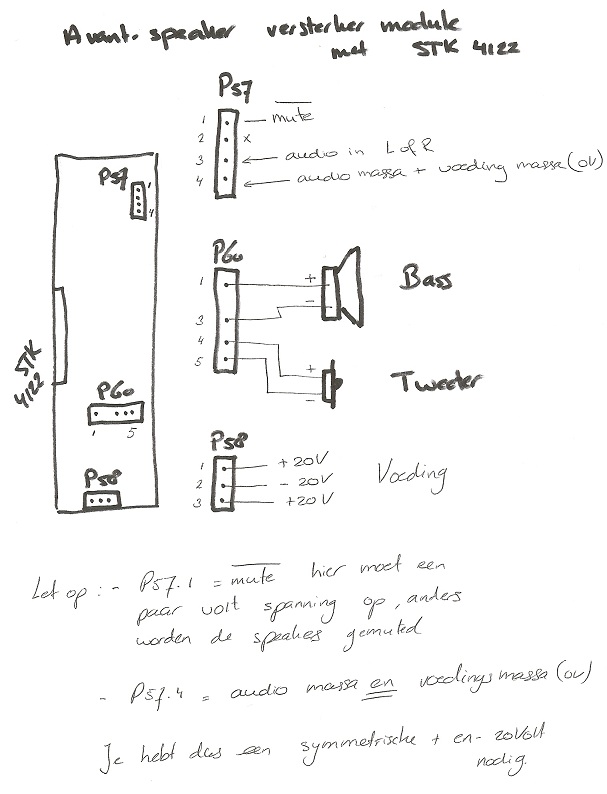 Avant. speaker versterker module
met STK 4122
P57
1 mute
2 x
3 audio in L of R
4 audio massa + voeding massa (0V)
P57
1
4
P60
1 + Bass
3 -
4
5 + Tweeter
-
STK
4122
P60
1 5
P58
P58
1 +20V
2 -20V Voeding
3 +20V
Let op : - P57.1 = mute hier moet een
paar volt spanning op, anders
worden de speakers gemuted
- P57.4 = audio massa en voedingsmassa (0V)
Je hebt dus een symmetrische + en - 20Volt
nodig.